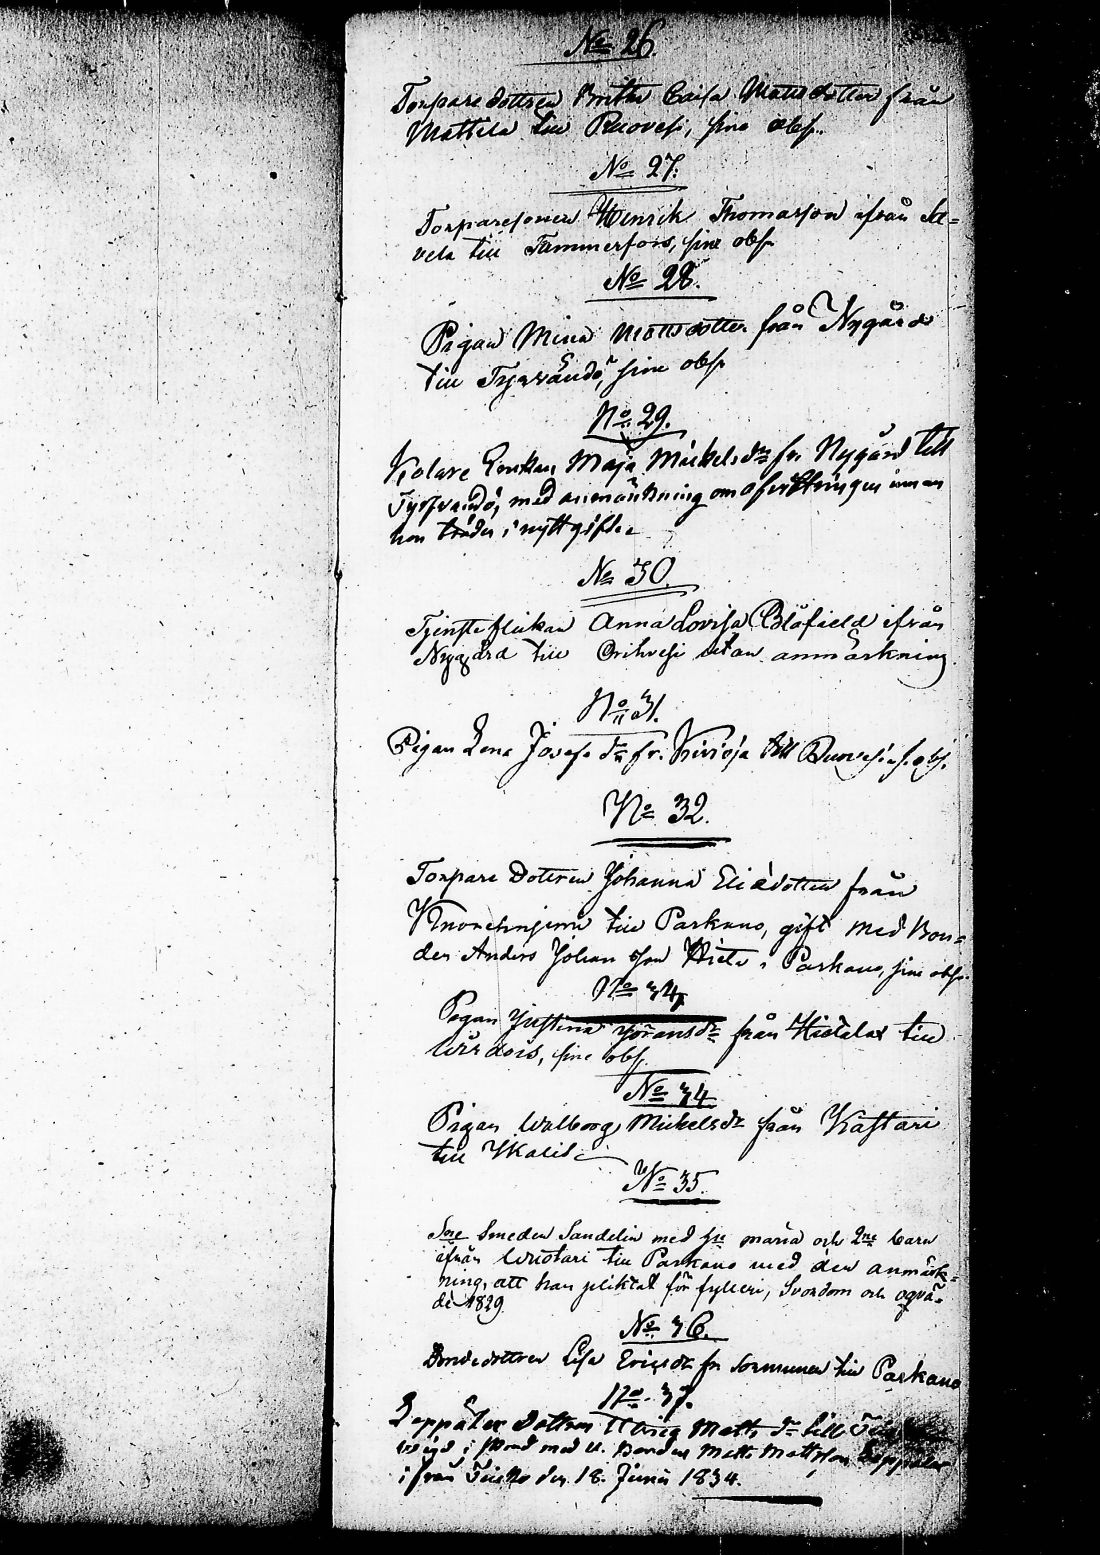 No 26.
Torpare dottren Brita Caisa Mattsdotter från
Mattila till Ruovesi, sine obs.
No 27:
Torparesonen Henrik Thomasson ifrån Sa=
vela till Tammerfors, sine obs
No 28.
Pigan Mina Mattsdotter från Nygård
till Tyrvändö, sine obs
No 29.
Enkan Maja Mickelsdr fr. Nygård till
Tyrvändö, med anmärkning om innan
hon träder i nytt gifte
No 30.
Tjensteflickan Anna Lovisa Blåfield ifrån
Nygård till Orihvesi utan anmärkning
No 31.
Pigan Lena Josefs dr fr. Kivioja till Ruovesi s. obs.
No 32.
Torpare Dottren Johanna Eliædotter från
till Parkano, gift med Bon=
den Anders Johan son i Parkano, sine obs.
No 34
Pigan Justina Jöransdr från Hietala till
Wirdois, sine obs.
No 34
Pigan Walborg Mickelsdr från Kastari
till Ikalis
No 35.
Smeden Sandelin med hu maria och 2ne barn
ifrån till Parkano med den anmärk=
ning, att han pliktat för fylleri, Svordom och oqvä=
de 1829.
No 36.
Bondedottren Lisa Ericsdr fr Sormunen till Parkano
No 37.
Dottren Matts dr till
med Bonden Matts Mattsson
ifrån Teisko den 18. Junii 1834.